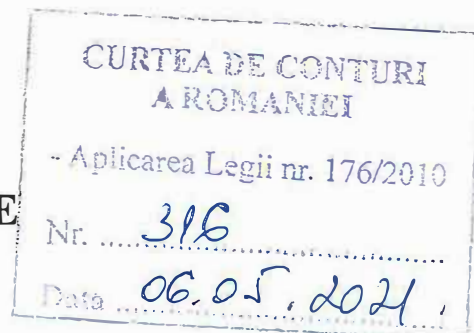 CURTEA DE CONTURI
A ROMANIEI
- Aplicarea Legii nr. 176/2010
E
Nr. ..... 316
Data ..... 06.05.2021.